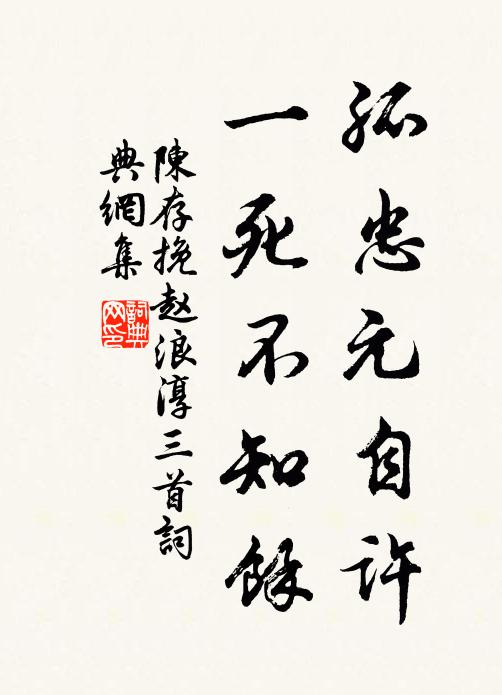 孤忠元自許
一死不知餘
陳存挽趙浪淳三首詞
典網集
詞典
网印